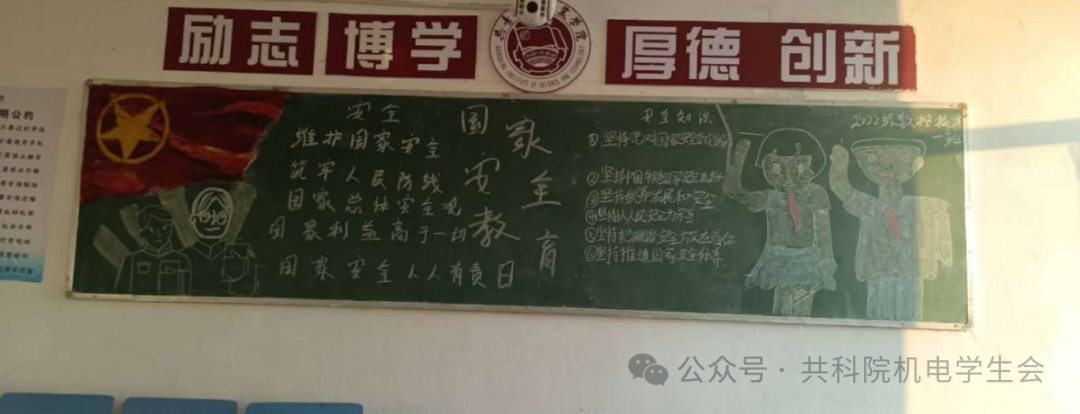 励志 博学
厚德 创新
安全
维护国家安全
筑牢人民防线
国家总体安全观
国家利益高于一切
国家安全人人有责
国家安全教育日
安全知识
2022级数控技术
一班
①坚持党对国家安全
②坚持中国特色国家安全道路
③坚持统筹发展和安全
④坚持以人民安全为宗旨
⑥坚持推进国家安全体系
公众号·共科院机电学生会